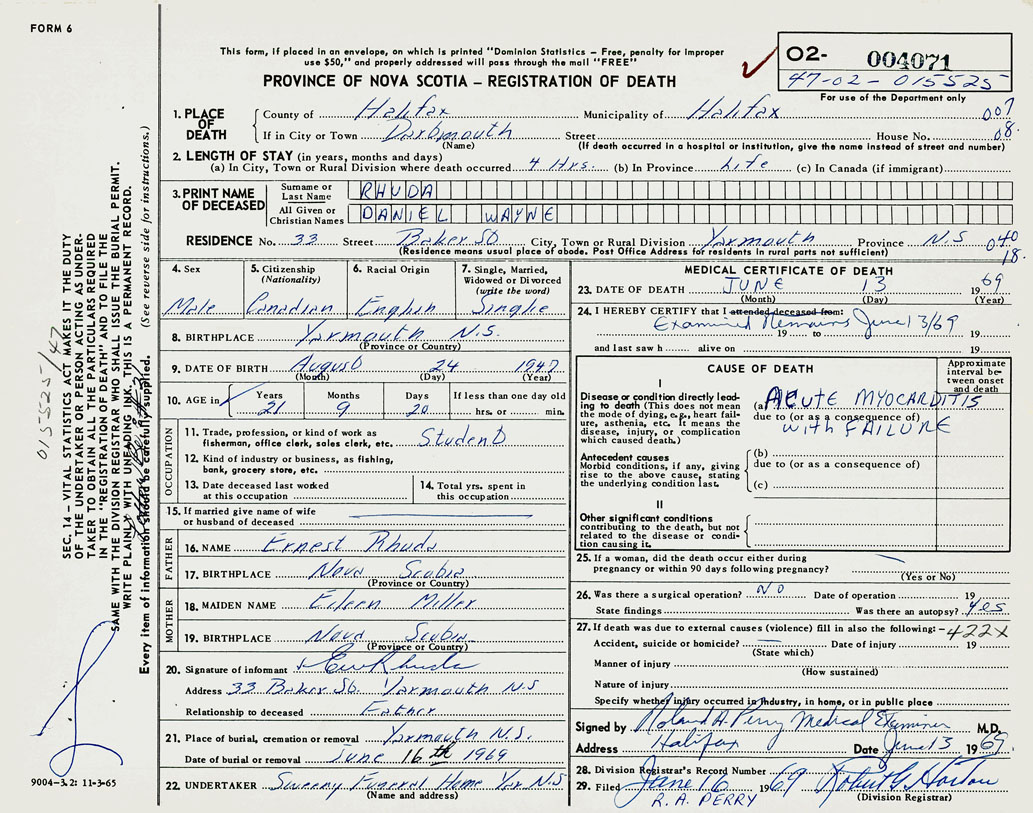 FORM 6
This form, if placed in an envelope, on which is printed "Dominion Statistics – Free, penalty for improper
use $50," and properly addressed will pass through the mail "FREE"
PROVINCE OF NOVA SCOTIA – REGISTRATION OF DEATH
O2- 004071
47-02-015525
For use of the Department only
1. PLACE OF DEATH
County of Halifax Municipality of Halifax 007
If in City or Town Dartmouth Street House No. 08
(Name) (If death occurred in a hospital or institution, give the name instead of street and number)
2. LENGTH OF STAY (in years, months and days)
(a) In City, Town or Rural Division where death occurred 4 Hrs. (b) In Province Life (c) In Canada (if immigrant)
3. PRINT NAME OF DECEASED
Surname or Last Name RHUDA
All Given or Christian Names DANIEL WAYNE
RESIDENCE No. 33 Street Baker St City, Town or Rural Division Yarmouth Province N.S 040
(Residence means usual place of abode. Post Office Address for residents in rural parts not sufficient) 18.
4. Sex
Male
5. Citizenship (Nationality)
Canadian
6. Racial Origin
English
7. Single, Married, Widowed or Divorced (write the word)
Single
8. BIRTHPLACE Yarmouth N.S.
(Province or Country)
9. DATE OF BIRTH August 24 1947
(Month) (Day) (Year)
10. AGE in Years Months Days If less than one day old
21 9 20 hrs. or min.
OCCUPATION
11. Trade, profession, or kind of work as
fisherman, office clerk, sales clerk, etc. Student
12. Kind of industry or business, as fishing,
bank, grocery store, etc.
13. Date deceased last worked
at this occupation
14. Total yrs. spent in
this occupation
15. If married give name of wife
or husband of deceased
FATHER
16. NAME Ernest Rhuda
17. BIRTHPLACE Nova Scotia
(Province or Country)
MOTHER
18. MAIDEN NAME Eileen Miller
19. BIRTHPLACE Nova Scotia
(Province or Country)
20. Signature of informant Rhuda
Address 33 Baker St. Yarmouth N.S
Relationship to deceased Father
21. Place of burial, cremation or removal Yarmouth N.S.
Date of burial or removal June 16th 1969
22. UNDERTAKER Sweeny Funeral Home Yar N.S
(Name and address)
MEDICAL CERTIFICATE OF DEATH
23. DATE OF DEATH JUNE 13 1969
(Month) (Day) (Year)
24. I HEREBY CERTIFY that I attended deceased from:
Examined Remains June 13/69
19 to 19
and last saw h alive on 19
CAUSE OF DEATH
Approximate interval between onset and death
I
Disease or condition directly leading to death (This does not
mean the mode of dying, e.g., heart failure, asthenia, etc. It means the
disease, injury, or complication which caused death.)
(a) ACUTE MYOCARDITIS
due to (or as a consequence of)
with FAILURE
Antecedent causes
Morbid conditions, if any, giving
rise to the above cause, stating
the underlying condition last.
(b)
due to (or as a consequence of)
(c)
II
Other significant conditions
contributing to the death, but not
related to the disease or condition causing it.
25. If a woman, did the death occur either during
pregnancy or within 90 days following pregnancy?
(Yes or No)
26. Was there a surgical operation? NO Date of operation 19
State findings Was there an autopsy? Yes
27. If death was due to external causes (violence) fill in also the following: -422X
Accident, suicide or homicide? Date of injury 19
(State which)
Manner of injury
(How sustained)
Nature of injury
Specify whether injury occurred in industry, in home, or in public place
Signed by Roland A. Perry Medical Examiner M.D.
Address Halifax Date June 13 1969
28. Division Registrar's Record Number
29. Filed June 16 1969 Robert G
R.A. PERRY (Division Registrar)
SEC. 14 – VITAL STATISTICS ACT MAKES IT THE DUTY
OF THE UNDERTAKER OR PERSON ACTING AS UNDER-
TAKER TO OBTAIN ALL THE PARTICULARS REQUIRED
IN THE "REGISTRATION OF DEATH" AND TO FILE THE
SAME WITH THE DIVISION REGISTRAR WHO SHALL ISSUE THE BURIAL PERMIT.
WRITE PLAINLY WITH UNFADING INK. THIS IS A PERMANENT RECORD.
Every item of information should be carefully supplied. (See reverse side for instructions.)
015525/47
9004-3.2: 11-3-65